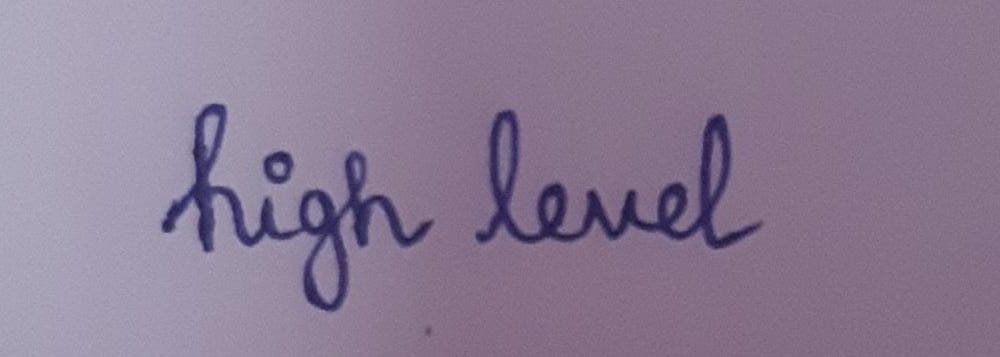 high level